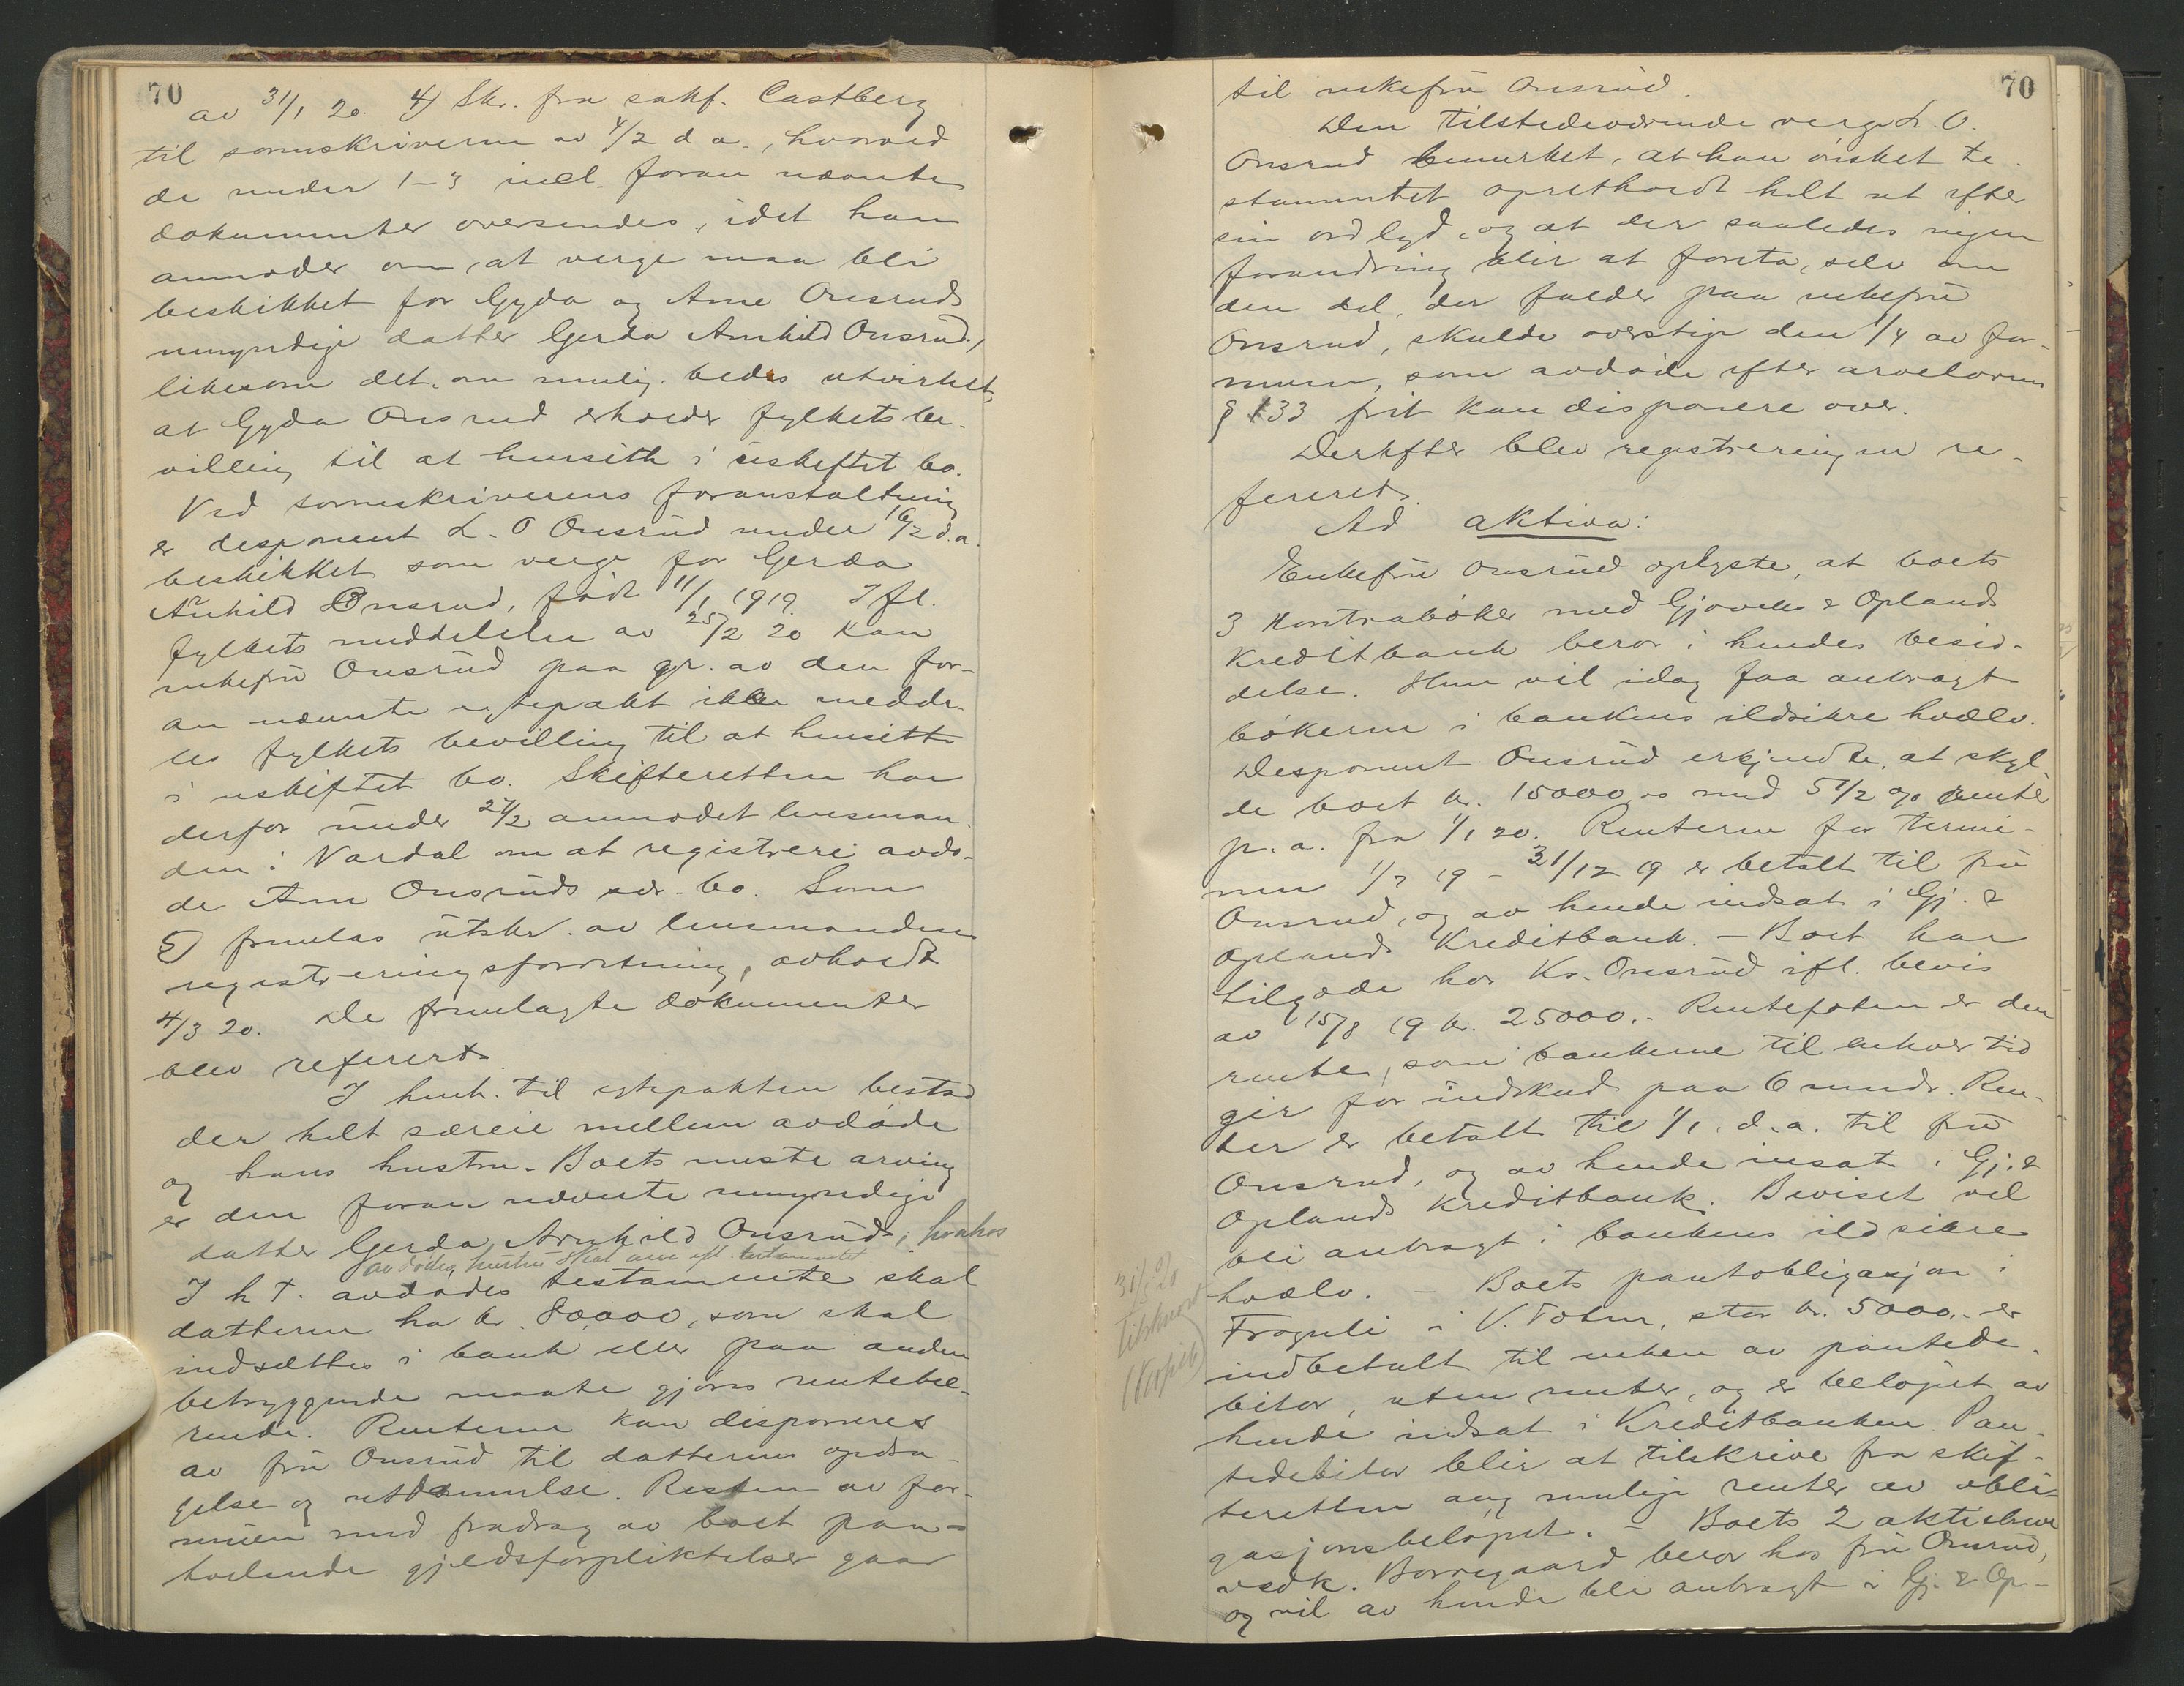 70
av 31/1 20. 4) Skr. fra sakf. Castberg
til sorenskriveren av 4/2 d a., hvorved
de under 1-3 incl. foran nævnte
dokumenter oversendes, idet han
anmoder om, at verge maa bli
beskikket for Gyda og Arne Onsruds
umyndige datter Gerda Arnhild Onsrud,
likesom det om mulig bedes utvirket,
at Gyda Onsrud erholder fylkets be-
villing til at hensitte i uskiftet bo.
Ved sorenskriverens foranstaltning
er disponent L. O Onsrud under 16/2 d.a.
beskikket som verge for Gerda
Arnhild Onsrud, født 11/1 1919. Ifl.
fylkets meddelelse av 25/2 20 kan
enkefru Onsrud paa gr. av den for-
an nævnte egtepakt ikke medde-
les fylkets bevilling til at hensitte
i uskiftet bo. Skifteretten har
derfor under 27/2 anmodet lensman-
den i Vardal om at registrere avdø-
de Arne Onsruds sær-bo. Som
5) fremlas utskr. av lensmandens
registreringsforretning, avholdt
4/3 20. De fremlagte dokumenter
blev referert.
I henh. til egtepakten bestod
der helt særeie mellem avdøde
og hans hustru. Boets neste arving
er den foran nævnte umyndige
datter Gerda Arnhild Onsrud; hvorhos
avdødes hustru skal arve efl. testamentet
I h t. avdødes testamente skal
datteren ha kr. 80,000, som skal
indsættes i bank eller paa anden
betryggende maate gjøres rentebæ-
rende. Renterne kan disponeres
av fru Onsrud til datterens opdra-
gelse og utdannelse. Resten av for-
muen med fradrag av boet paa-
hvilende gjeldsforpliktelser gaar
70
til enkefru Onsrud.
Den tilstedeværende verge L. O.
Onsrud bemerket, at han ønsket te-
stamentet opretholdt helt ut efter
sin ordlyd, og at der saaledes ingen
forandring blir at foreta, selv om
den del, der falder paa enkefru
Onsrud, skulde overstige den 1/4 av for-
muen, som avdøde efter arvelovens
§ 33 frit kan disponere over.
Derefter blev registreringen re-
fereret.
Ad aktiva:
Enkefru Onsrud oplyste, at boets
3 kontrabøker med Gjøvik & Oplands
Kreditbank beror i hendes besid-
delse. Hun vil idag faa anbragt
bøkerne i bankens ildsikre hvælv.
Disponent Onsrud erkjendte, at skyl-
de boet kr. 15000,00 med 5 1/2 % renter
p. a. fra 1/1 20. Renterne for termi-
nen 1/7 19 - 31/12 19 er betalt til fru
Onsrud, og av hende indsat i Gj. &
Oplands Kreditbank. - Boet har
tilgode hos Kr. Onsrud ifl. bevis
av 15/8 19 kr. 25000.- Rentefoten er den
rente, som bankerne til enhver tid
gir for indskud paa 6 mndr. Ren-
ter er betalt til 1/1. d.a. til fru
Onsrud, og av hende insat i Gj. &
Oplands Kreditbank. Beviset vil
bli anbragt i bankens ildsikre
hvælv. - Boets pantobligasjon i
Froguli i V. Toten, stor kr. 5000,- er
indbetalt til enken av pantede-
bitor, uten renter, og er beløpet av
hende indsat i Kreditbanken. Pan-
tedebitor blir at tilskrive fra skif-
teretten ang mulige renter av obli-
gasjonsbeløpet. - Boets 2 aktiebreve
vedk. Borregaard beror hos fru Onsrud,
og vil av hende bli anbragt i Gj. & Op-
31/3 20
tilskrevet
(Kopieb)